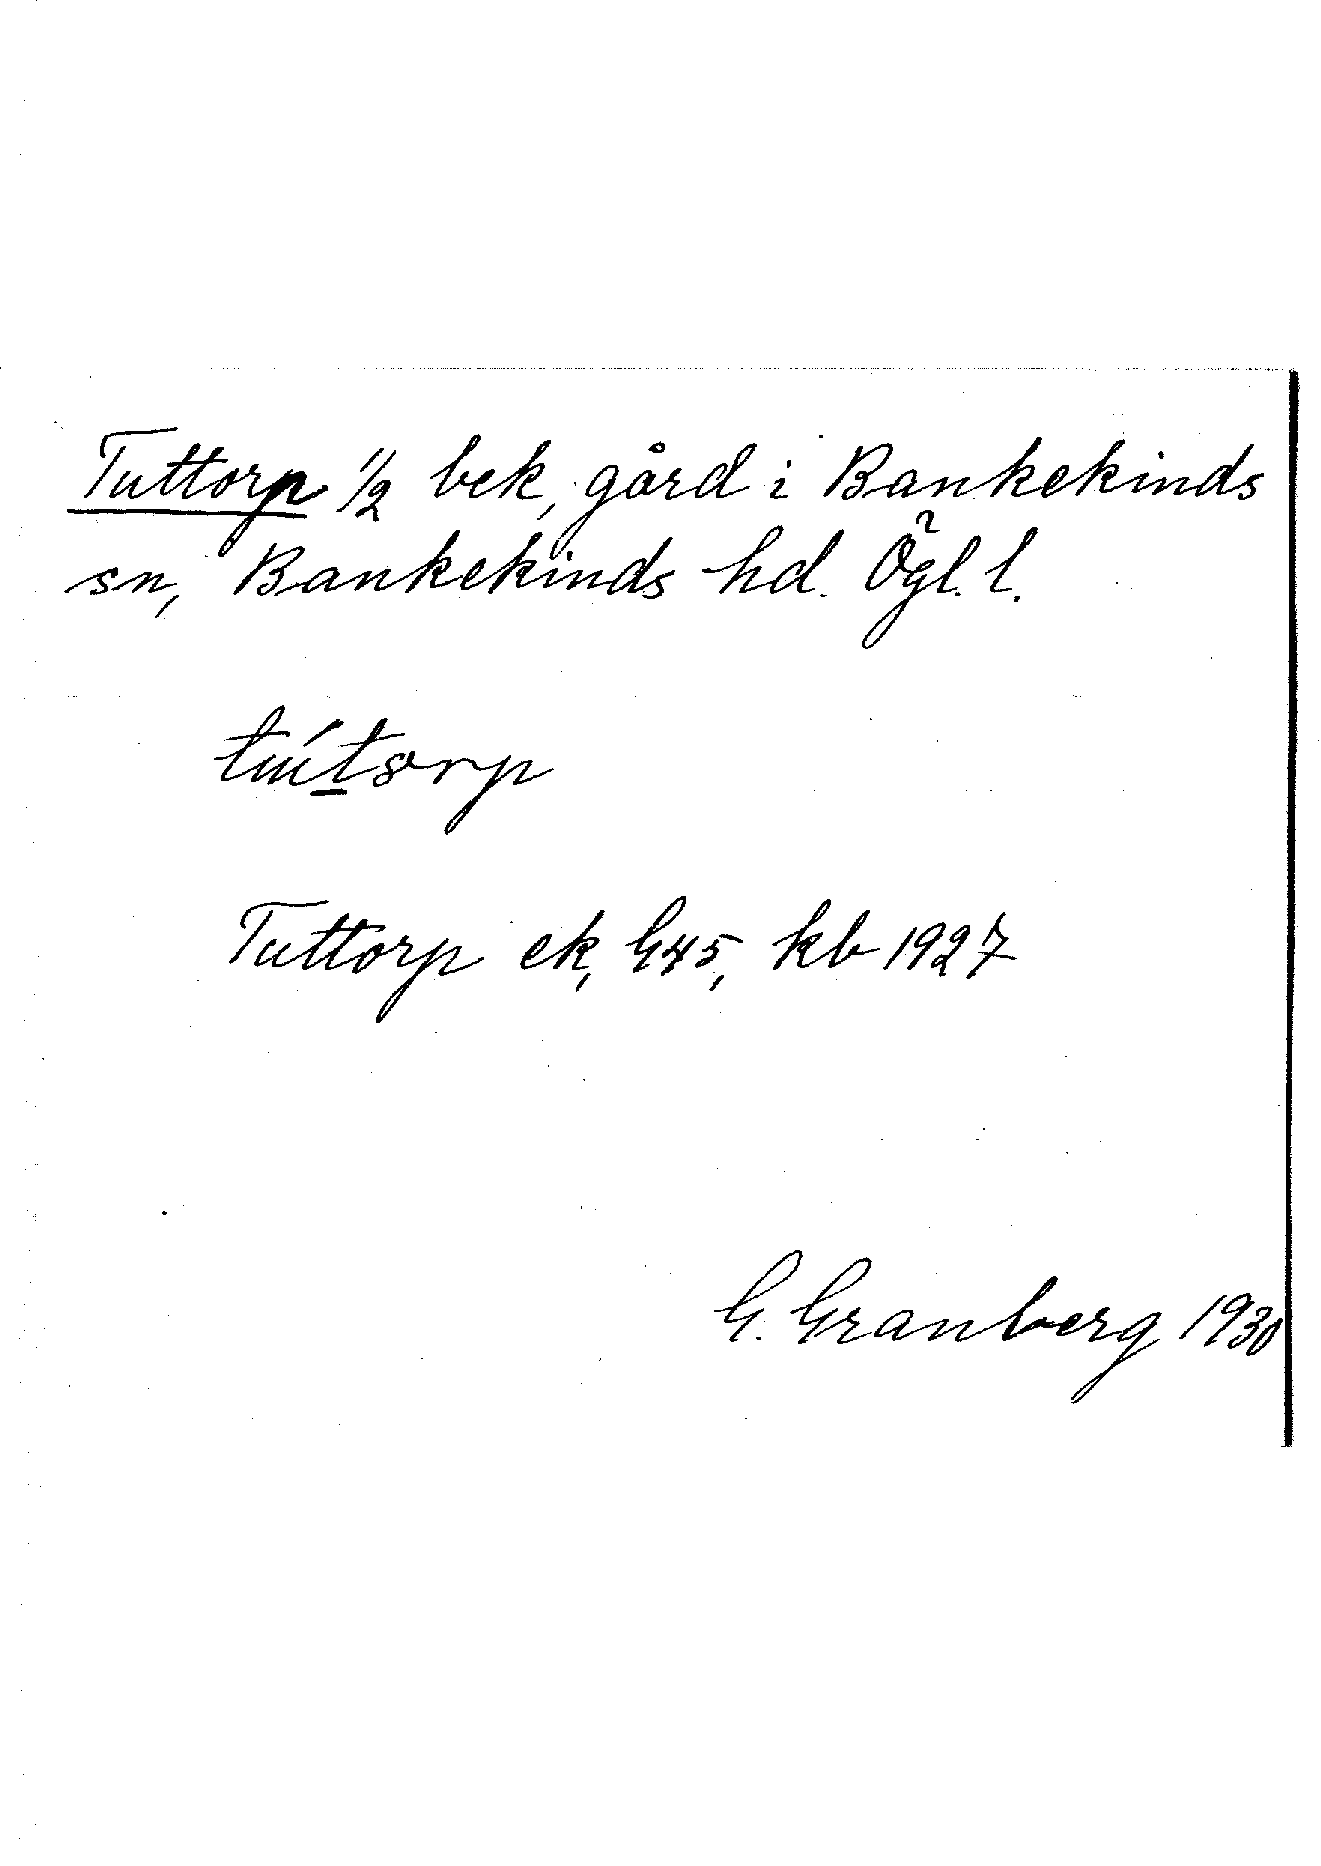 Tuttorp 1/2 bek, gård i Bankekinds
sn, Bankekinds hd. Ögl. l.
Tuttorp ek, G45, kb 1927
G. Granberg 1930